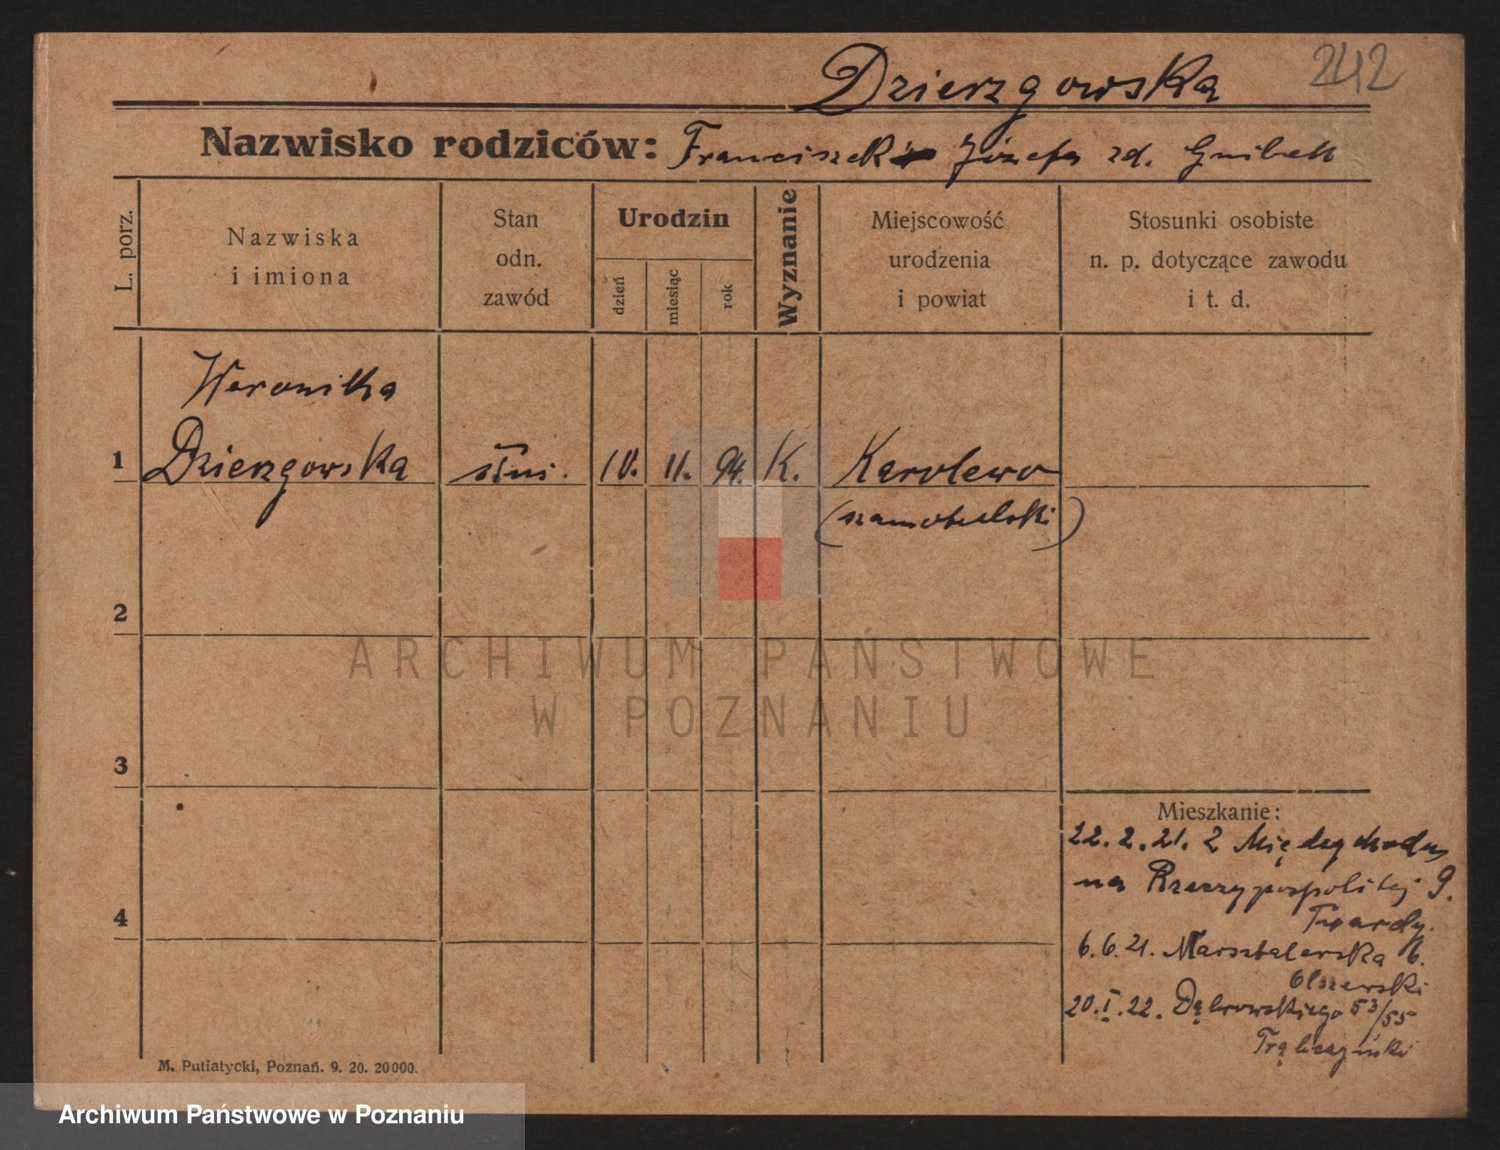 Dzierzgowska 242
Nazwisko rodziców: Franciszek i Józefa zd.
L. porz.
Nazwiska
i imiona
Stan
odn.
zawód
Urodzin
dzień
miesiąc
rok
Wyznanie
Miejscowość
urodzenia
i powiat
Stosunki osobiste
n. p. dotyczące zawodu
i t. d.
Weronika
1 Dzierzgowska służ. 10. 11. 94. K. Karolewo
(szamotulski)
2
3
4
Mieszkanie:
22. 2. 21. z Międzychodu
na Rzeczypospolitej 9.
Twardy.
6. 6. 21. Masztalarska 6.
Olszewski
20. I. 22. Dąbrowskiego 53/55
Trąbczyński
M. Putiatycki, Poznań. 9. 20. 20000.
ARCHIWUM PAŃSTWOWE
W POZNANIU
Archiwum Państwowe w Poznaniu